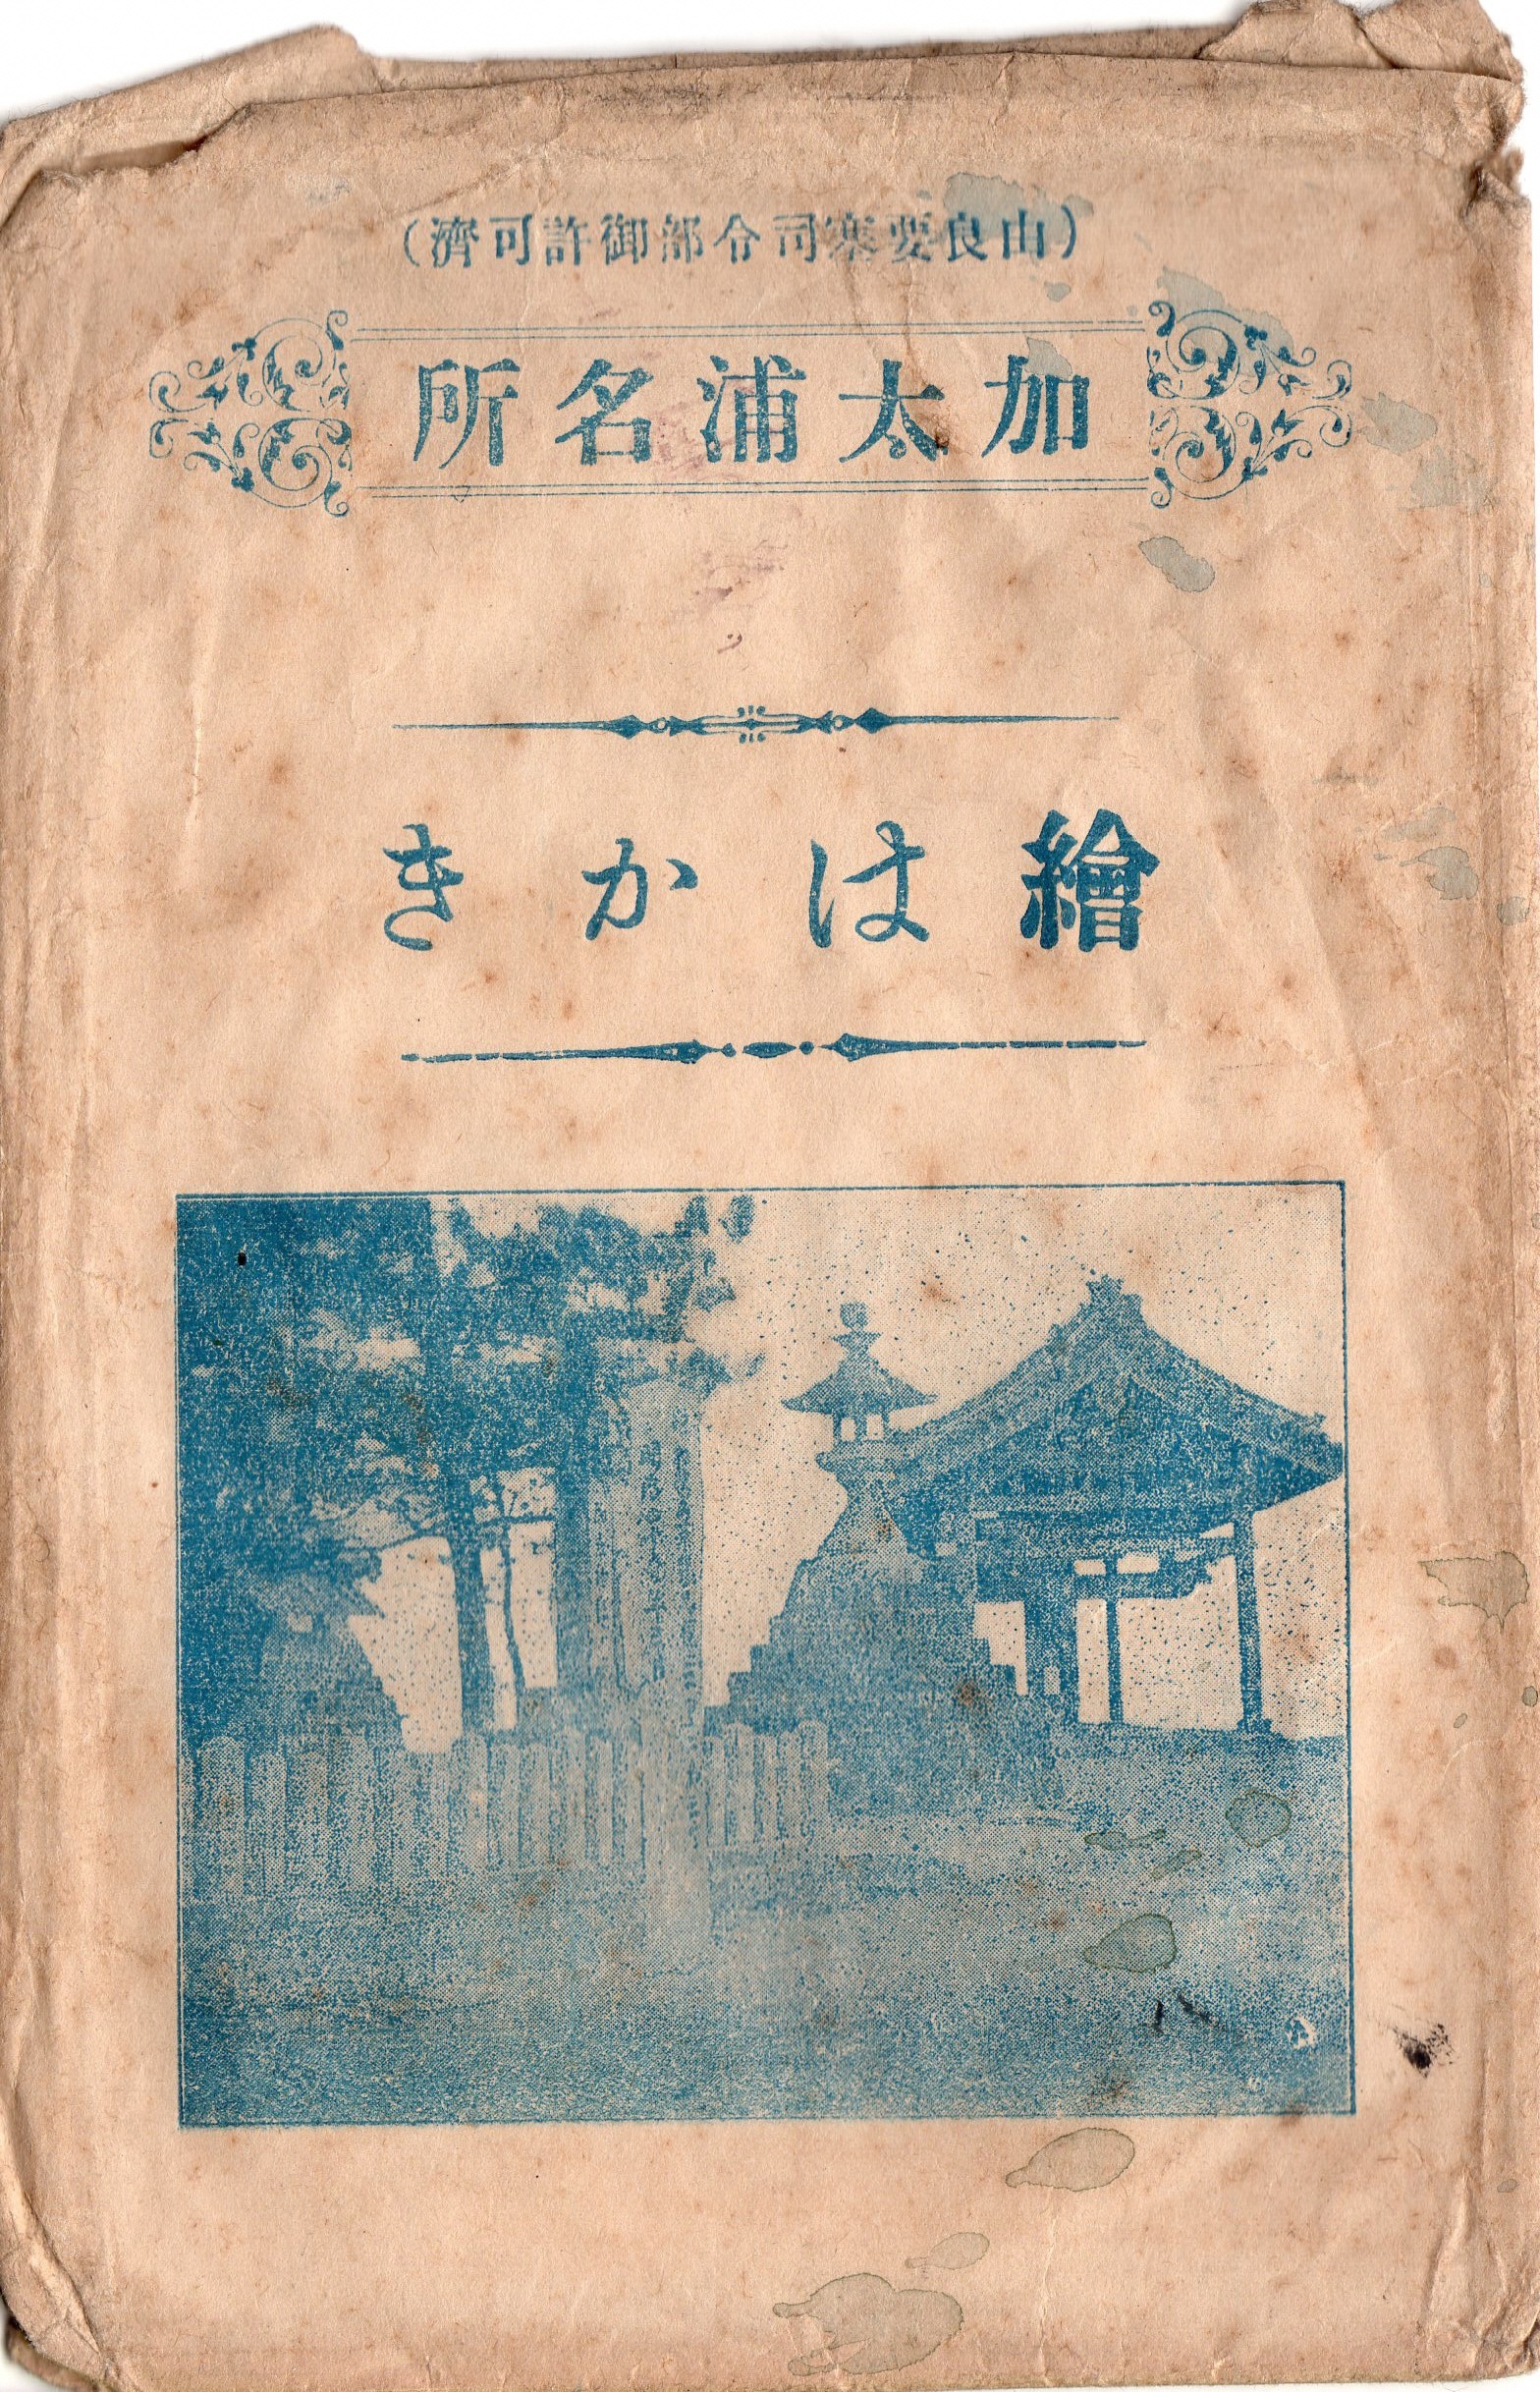 (由良要塞司令部御許可濟)
加太浦名所
繪はかき